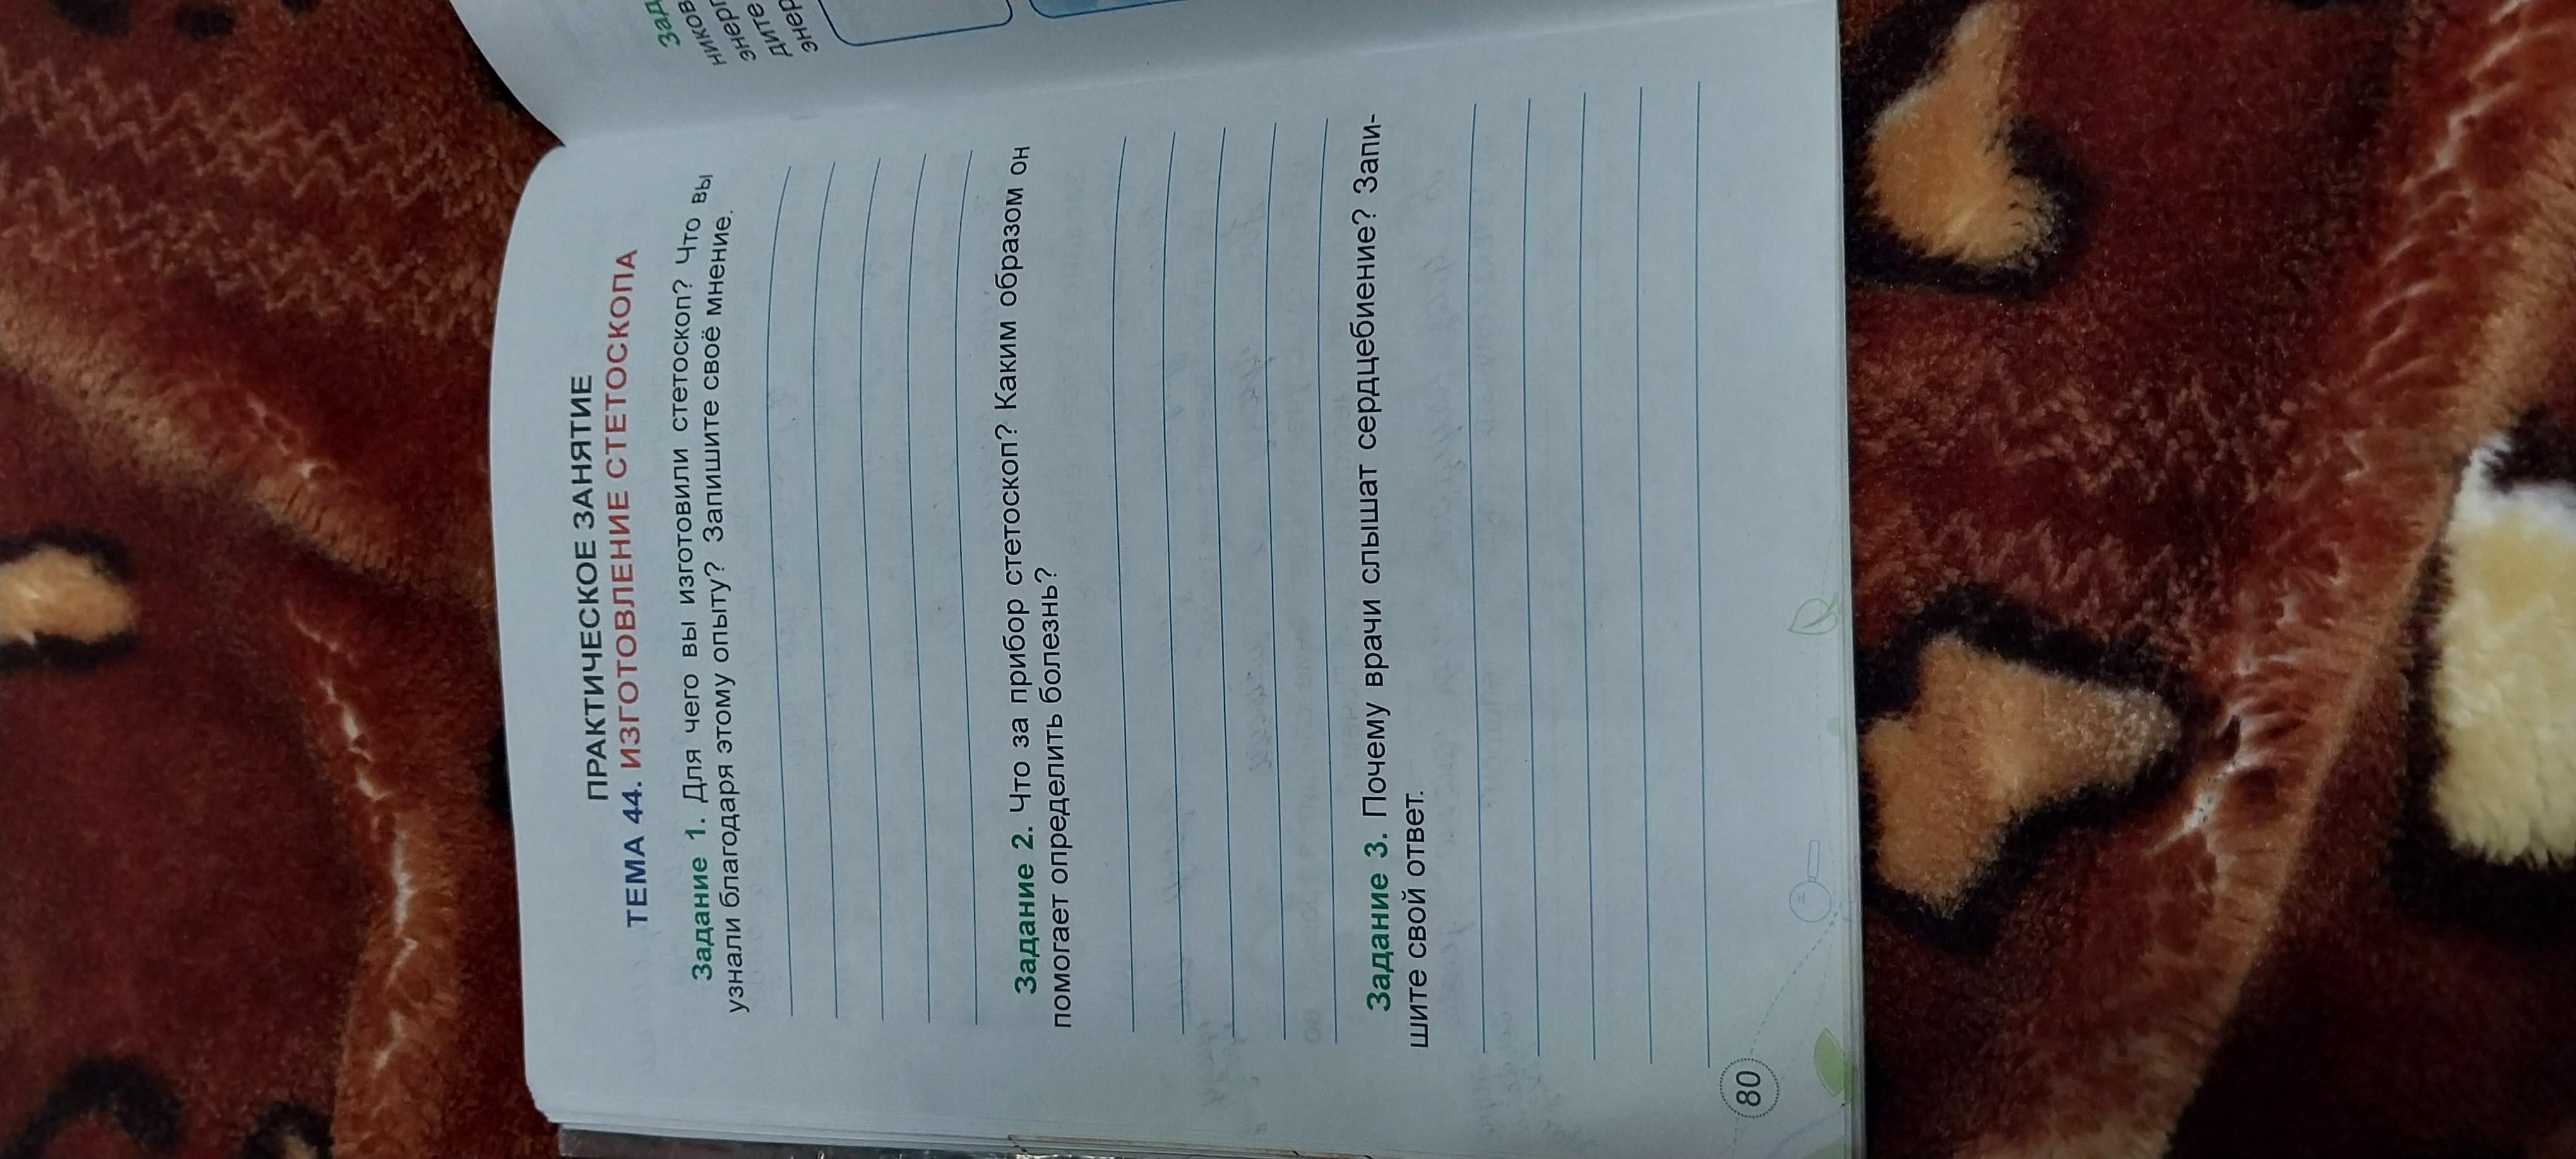 ПРАКТИЧЕСКОЕ ЗАНЯТИЕ
ТЕМА 44. ИЗГОТОВЛЕНИЕ СТЕТОСКОПА
Задание 1. Для чего вы изготовили стетоскоп? Что вы
узнали благодаря этому опыту? Запишите своё мнение.
Задание 2. Что за прибор стетоскоп? Каким образом он
помогает определить болезнь?
Задание 3. Почему врачи слышат сердцебиение? Запи-
шите свой ответ.
80
Зад
ников
энерг
дите
энер